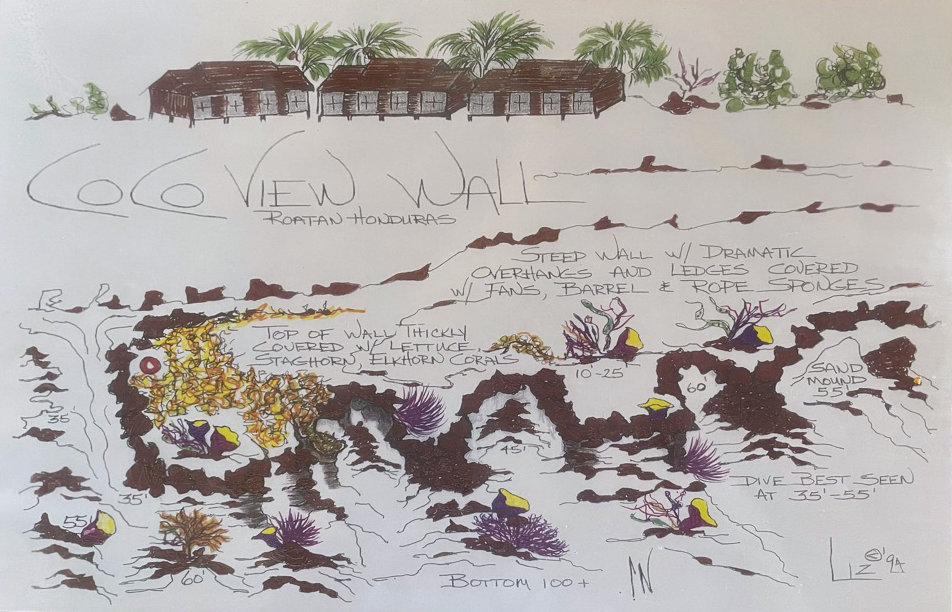 CoCo View Wall
Roatan Honduras
Steep Wall w/ Dramatic
Overhangs and Ledges Covered
w/ Fans, Barrel & Rope Sponges
Top of Wall Thickly
Covered w/ Lettuce,
Staghorn, Elkhorn Corals
10'-25'
60'
Sand
Mound
55'
35'
45'
Dive Best Seen
at 35'-55'
35'
55'
60'
Bottom 100+
N
Liz © '94